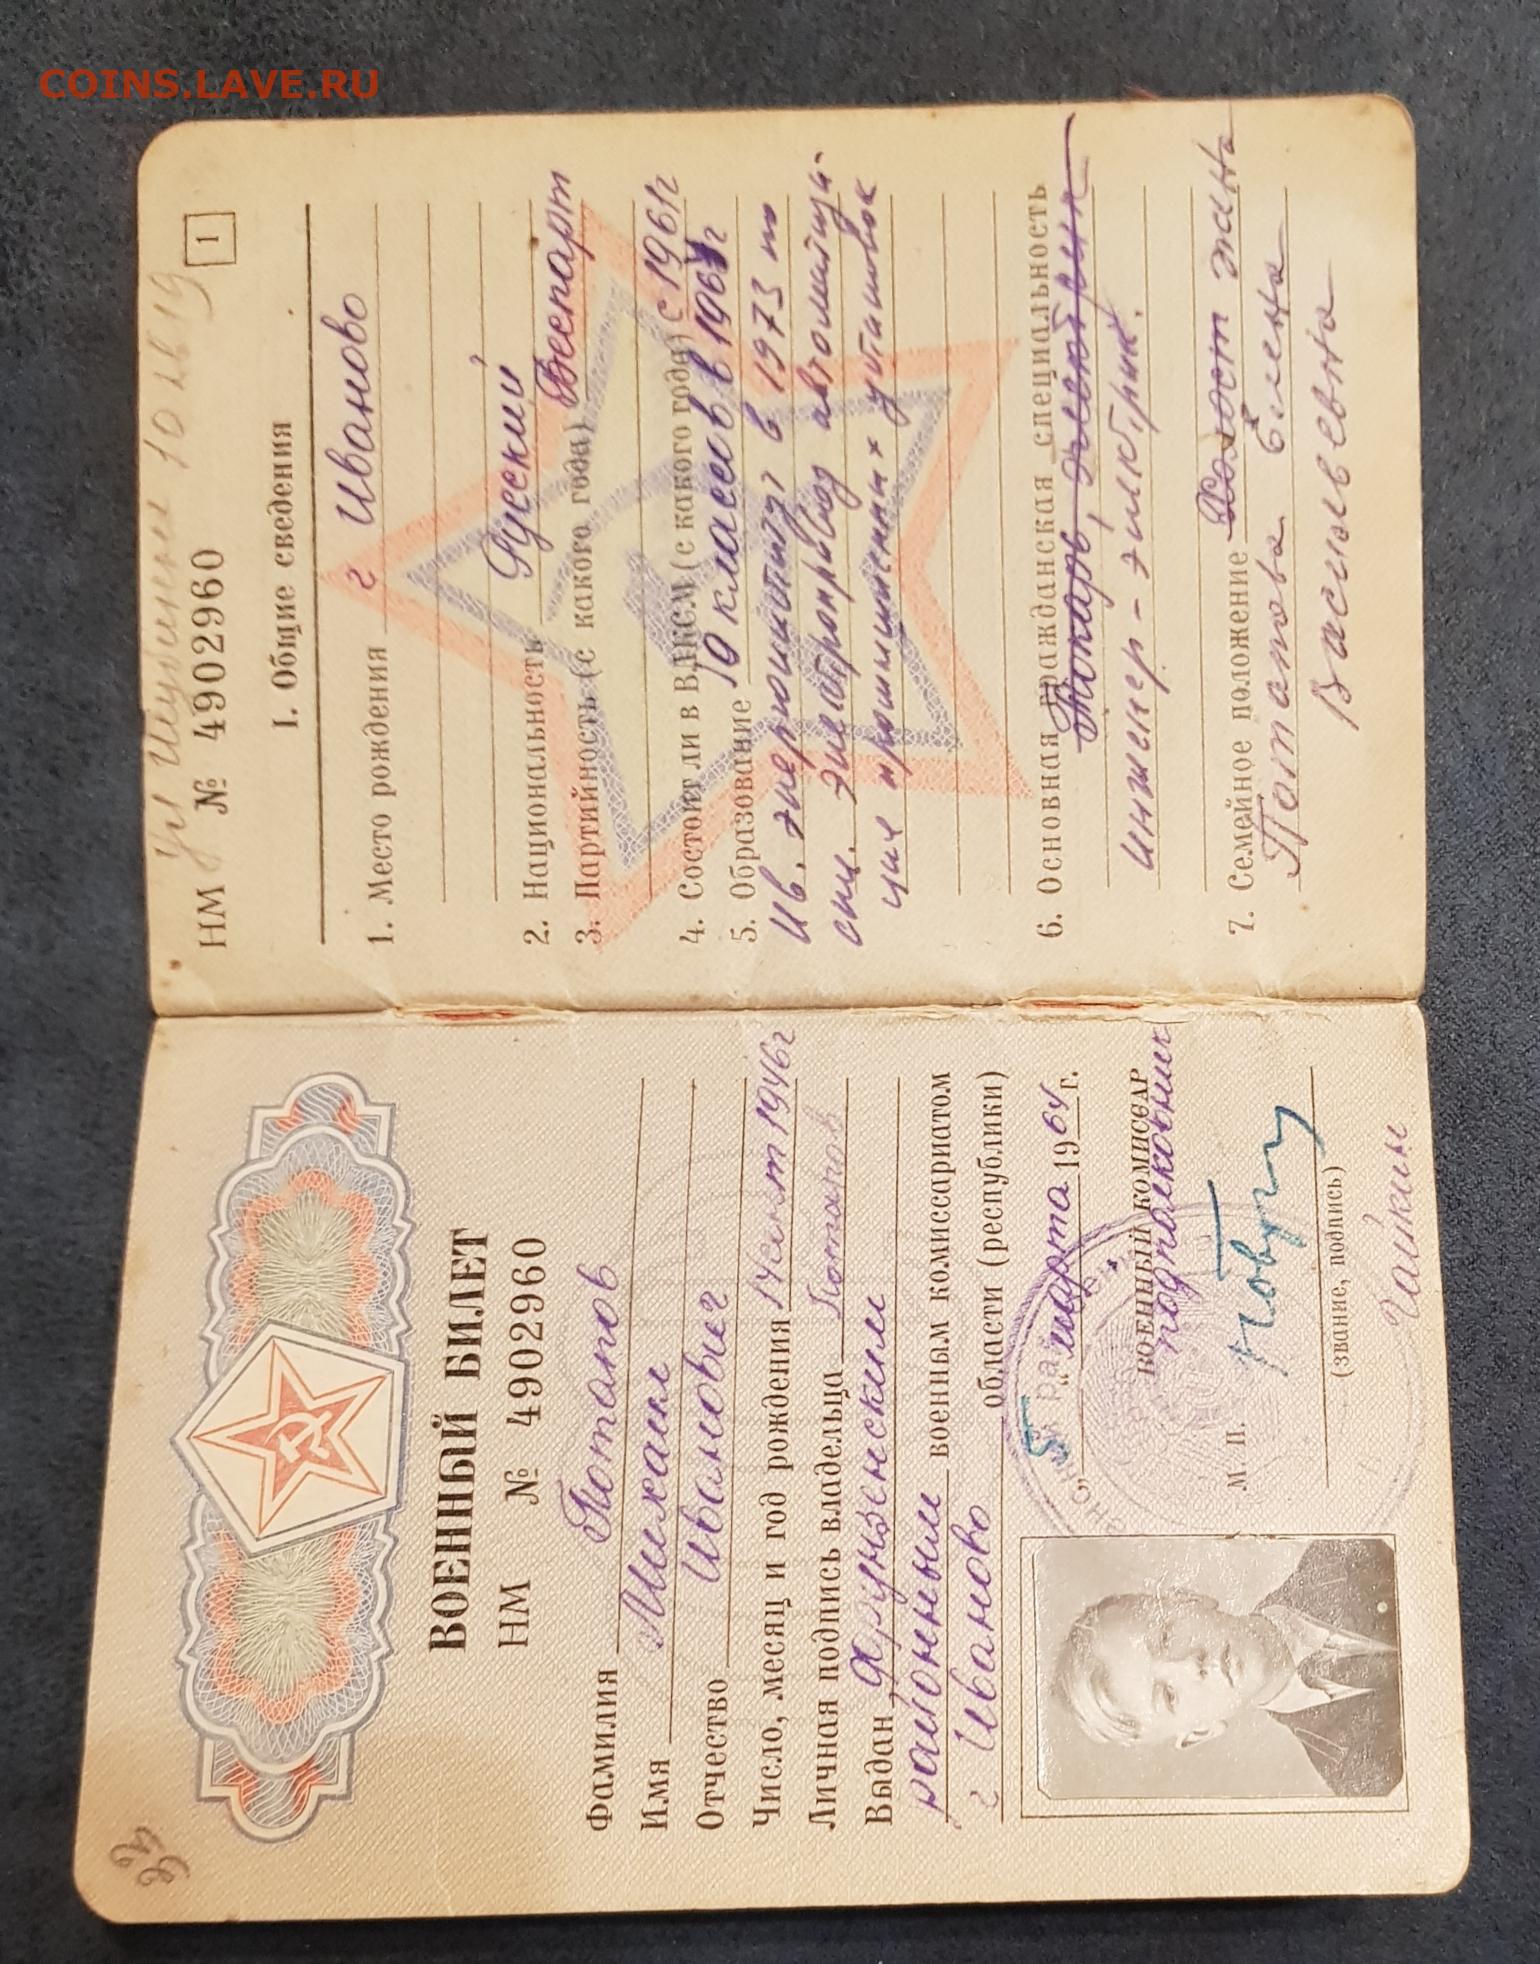 COINS.LAVE.RU
ВОЕННЫЙ БИЛЕТ
НМ № 4902960
Фамилия Потапов
Имя Михаил
Отчество Иванович
Число, месяц и год рождения 1946г
Личная подпись владельца Потапов
Выдан Фрунзенским
районным военным комиссариатом
г Иваново области (республики)
„5“ марта 1964 г.
ВОЕННЫЙ КОМИССАР
подполковник
М. П.
(звание, подпись)
Чайкин
1
НМ № 4902960
I. Общие сведения
1. Место рождения г Иваново
2. Национальность Русский
3. Партийность (с какого года) Беспарт
4. Состоит ли в ВЛКСМ (с какого года) с 1961г
5. Образование 10 классов в 1964г
Ив. энергоинститут в 1973 по
спец. электропривод автоматиза-
ция промышленных установок
6. Основная гражданская специальность
Токарь, электрик
инженер-электрик.
7. Семейное положение Холост жена
Потапова Елена
Васильевна